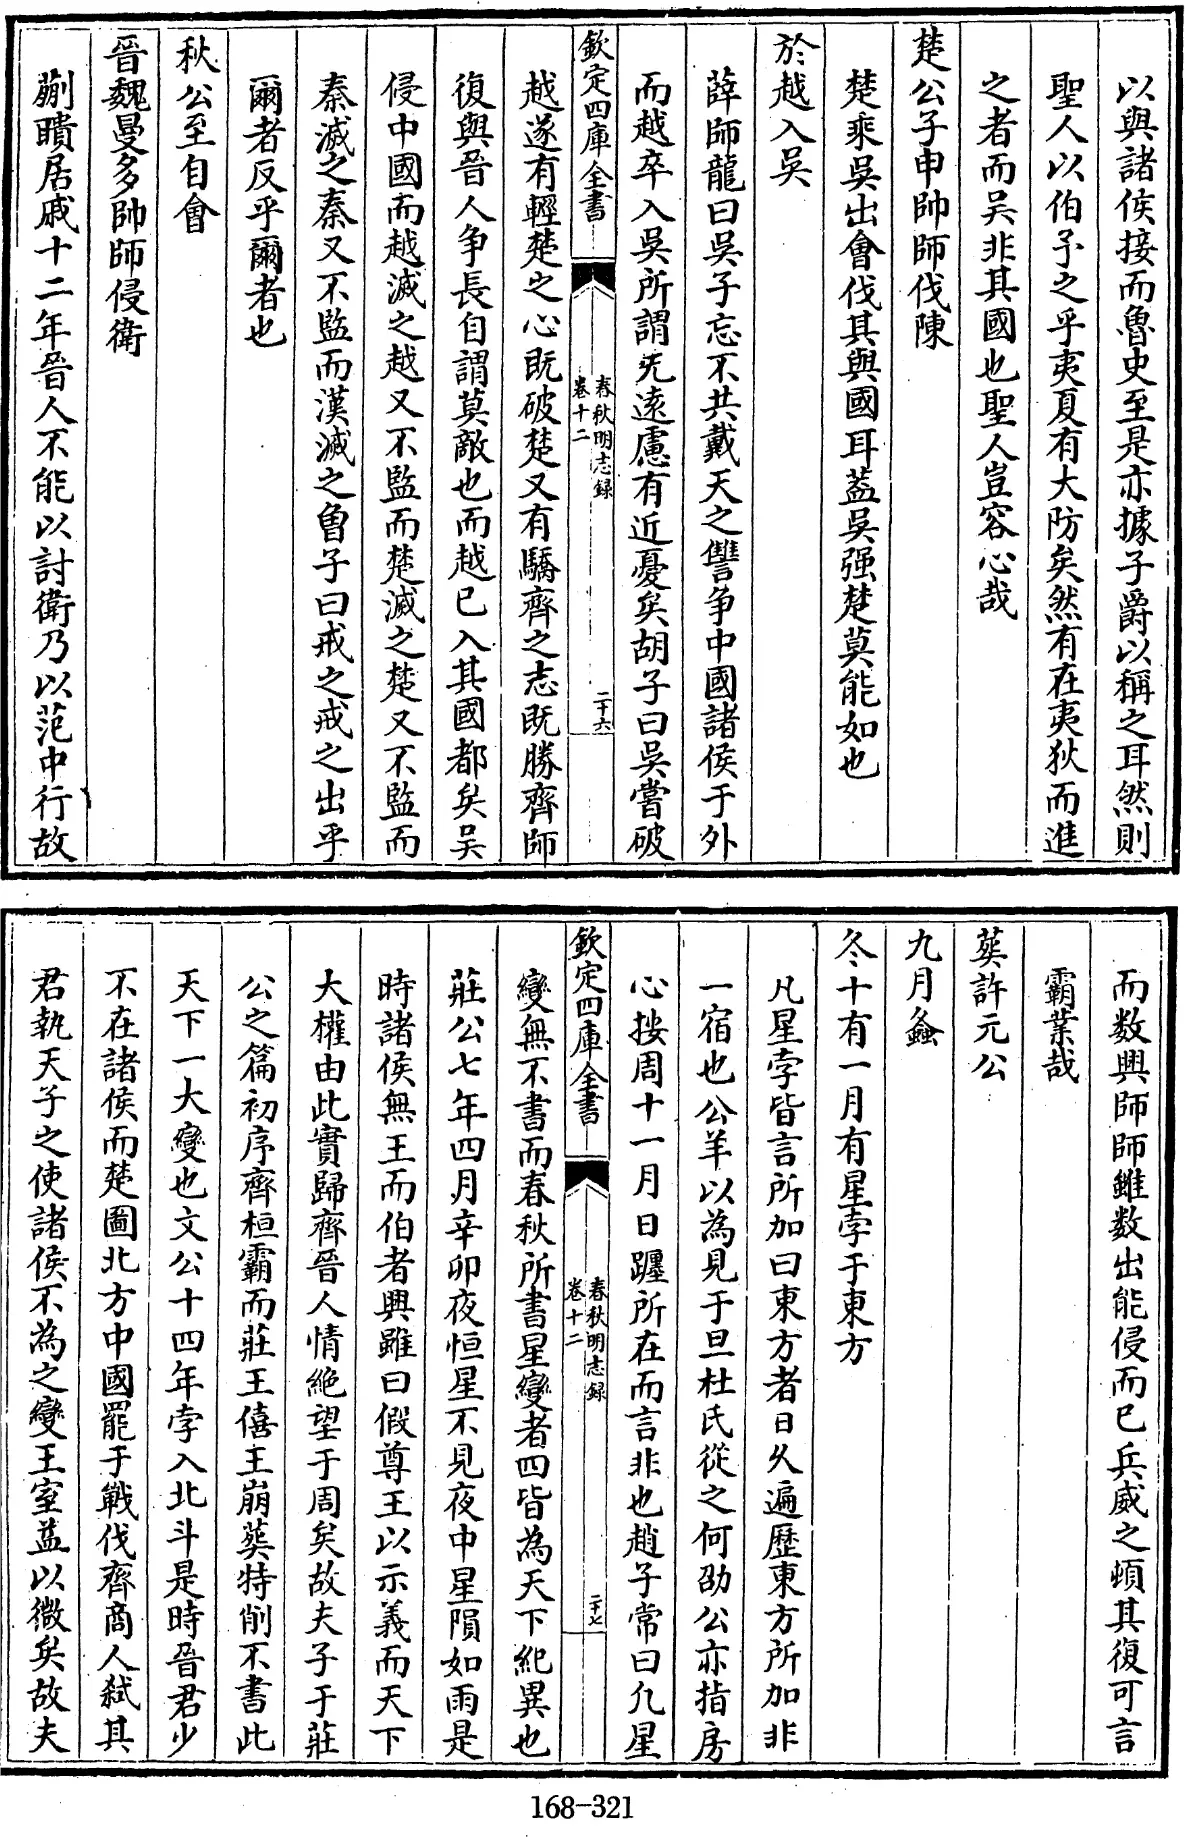 以與諸侯接而魯史至是亦據子爵以稱之耳然則
聖人以伯予之乎夷夏有大防矣然有在夷狄而進
之者而吴非其國也聖人豈容心哉
楚公子申帥師伐陳
楚乘吴出會伐其與國耳蓋吴强楚莫能如也
於越入吴
薛師龍曰吴子忘不共戴天之讐争中國諸侯于外
而越卒入吴所謂旡遠慮有近憂矣胡子曰吴嘗破
欽定四庫全書
春秋明志録
卷十二
二十六
越遂有輕楚之心既破楚又有驕齊之志既勝齊師
復與晉人争長自謂莫敵也而越已入其國都矣吴
侵中國而越滅之越又不監而楚滅之楚又不監而
秦滅之秦又不監而漢滅之曾子曰戒之戒之出乎
爾者反乎爾者也
秋公至自會
晉魏曼多帥師侵衛
蒯聵居戚十二年晉人不能以討衛乃以范中行故
而数興師師雖数出能侵而已兵威之頓其復可言
霸業哉
葬許元公
九月螽
冬十有一月有星孛于東方
凡星孛皆言所加曰東方者日久遍歷東方所加非
一宿也公羊以為見于旦杜氏從之何劭公亦指房
心按周十一月日躔所在而言非也趙子常曰凡星
欽定四庫全書
春秋明志録
卷十二
二十七
變無不書而春秋所書星變者四皆為天下紀異也
莊公七年四月辛卯夜恒星不見夜中星隕如雨是
時諸侯無王而伯者興雖曰假尊王以示義而天下
大權由此實歸齊晉人情絶望于周矣故夫子于莊
公之篇初序齊桓霸而莊王僖王崩葬特削不書此
天下一大變也文公十四年孛入北斗是時晉君少
不在諸侯而楚圖北方中國罷于戰伐齊商人弑其
君執天子之使諸侯不為之變王室益以微矣故夫
168-321